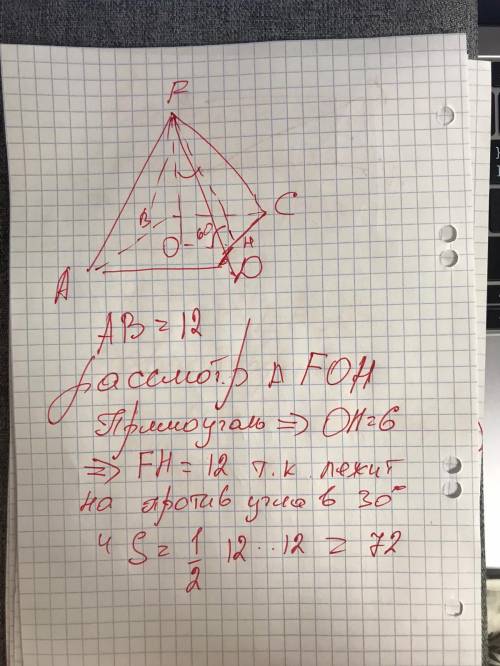 F
B
C
O
60
H
A
D
AB = 12
рассмотр Δ FOH
Прямоуголь => OH=6
=> FH = 12 т.к. лежит
на против угла в 30°
S = 1/2 12··12 = 72